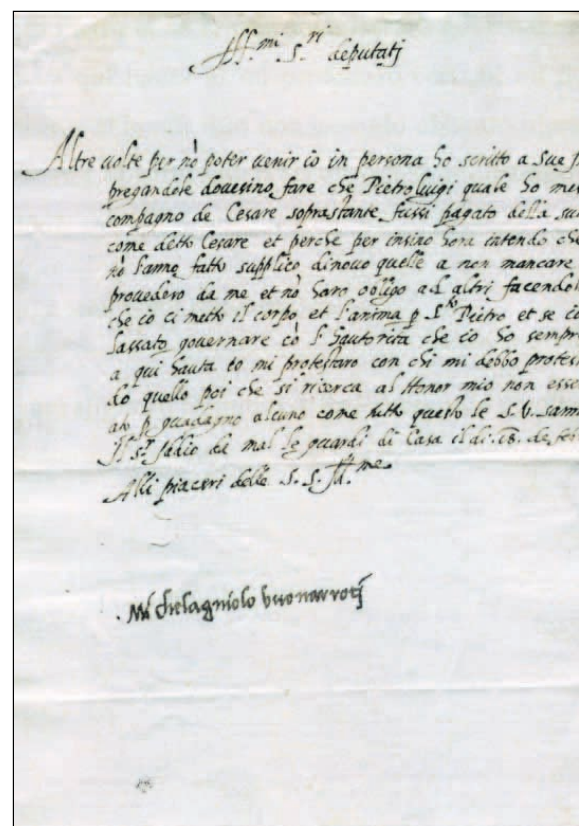 Ill.mi S.ri deputatj
Altre volte per nò poter venir io in persona ho scritto a Sue
pregandole dovesino fare che Pietroluigi quale ho
compagno de Cesare soprastante fussi pagato della
come detto Cesare et perche per insino hora intendo
nò lanno fatto supplico dinovo quelle a non mancare
provedero da me et nò haro obligo ad altri
che io ci metto il corpo et lanima p S.to Pietro et se
lassato governare cò l hautorita che io ho
a qui hauta io mi protestaro con chi mi debbo
do quello poi che si ricerca al honor mio non
p guadagno alcuno come tutto questo le S.V.
Il S.r Idio da mal le guardi di Casa il di .18. de
Alli piaceri delle S.S. Ill.me
Michelagniolo buonarrotj